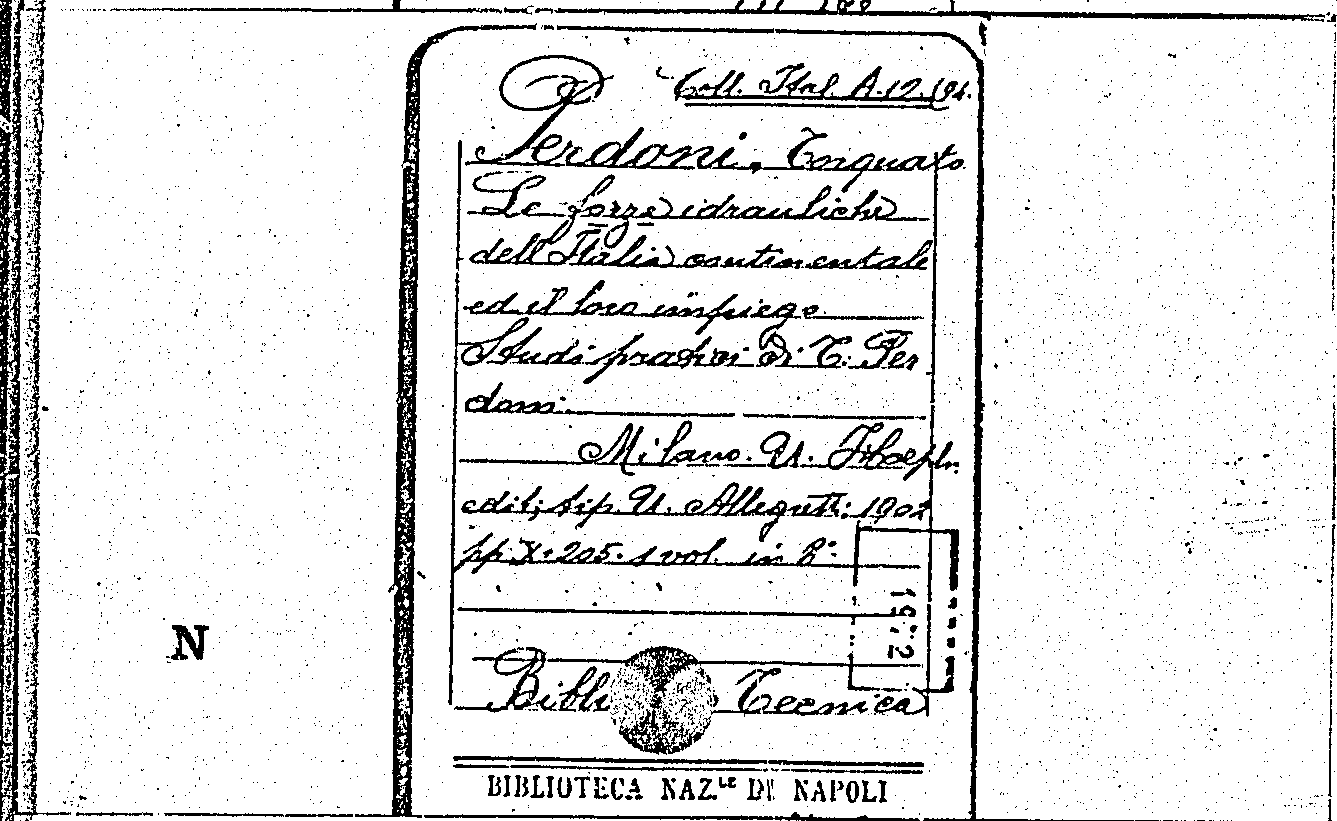 Coll. Ital. A.12.194.
Perdoni, Torquato
Le forze idrauliche
dell'Italia continentale
ed il loro impiego
Studi pratici di T. Per
doni.
Milano. U. Hoepli.
edit; tip. U. Allegretti: 1902
pp. X-205. 1 vol. in 8°.
1972
N
Bibli Tecnica
BIBLIOTECA NAZ.LE DI NAPOLI